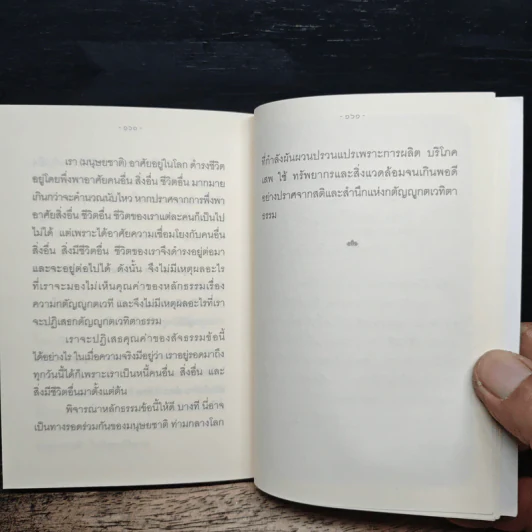 เรา (มนุษยชาติ) อาศัยอยู่ในโลก ดำรงชีวิต
อยู่โดยพึ่งพาอาศัยคนอื่น สิ่งอื่น ชีวิตอื่น มากมาย
เกินกว่าจะคำนวณนับไหว หากปราศจากการพึ่งพา
อาศัยสิ่งอื่น ชีวิตอื่น ชีวิตของเราแต่ละคนก็เป็นไป
ไม่ได้ แต่เพราะได้อาศัยความเชื่อมโยงกับคนอื่น
สิ่งอื่น สิ่งมีชีวิตอื่น ชีวิตของเราจึงดำรงอยู่ต่อมา
และจะอยู่ต่อไปได้ ดังนั้น จึงไม่มีเหตุผลอะไร
ที่เราจะมองไม่เห็นคุณค่าของหลักธรรมเรื่อง
ความกตัญญูกตเวที และจึงไม่มีเหตุผลอะไรที่เรา
จะปฏิเสธกตัญญูกตเวทิตาธรรม
เราจะปฏิเสธคุณค่าของสัจธรรมข้อนี้
ได้อย่างไร ในเมื่อความจริงมีอยู่ว่า เราอยู่รอดมาถึง
ทุกวันนี้ได้ก็เพราะเราเป็นหนี้คนอื่น สิ่งอื่น และ
สิ่งมีชีวิตอื่นมาตั้งแต่ต้น
พิจารณาหลักธรรมข้อนี้ให้ดี บางที นี่อาจ
เป็นทางรอดร่วมกันของมนุษยชาติ ท่ามกลางโลก
ที่กำลังผันผวนปรวนแปรเพราะการผลิต บริโภค
เสพ ใช้ ทรัพยากรและสิ่งแวดล้อมจนเกินพอดี
อย่างปราศจากสติและสำนึกแห่งกตัญญูกตเวทิตา
ธรรม